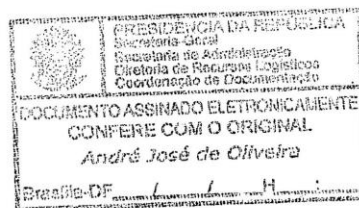 PRESIDÊNCIA DA REPÚBLICA
Secretaria-Geral
Secretaria de Administração
Diretoria de Recursos Logísticos
Coordenação de Documentação
DOCUMENTO ASSINADO ELETRONICAMENTE
CONFERE COM O ORIGINAL
André José de Oliveira
Brasília-DF ____/____/____ H ____:____